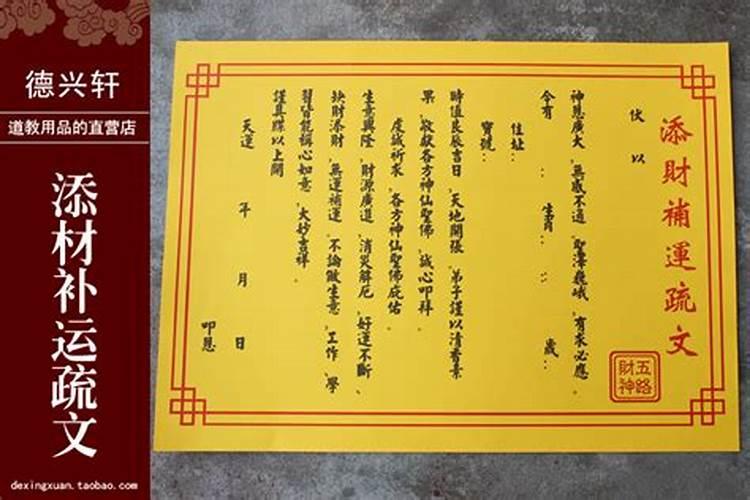 德兴轩
道教用品的直营店
添材补运疏文
dexingxuan.taobao.com
添財補運疏文
伏以
神恩廣大，無感不通，聖澤巍峨，有求必應。
今有：生肖：：歲：
住址：
寶號：
時值良辰吉日，天地開張，弟子謹以清香素
果，敬獻各方神仙聖佛，誠心叩拜。
虔誠祈求，各方神仙聖佛庇佑，
生意興隆，財源廣進，消災解厄，好運不斷、
缺財添財，無運補運，不論做生意、工作、學
習皆能稱心如意，大妙吉祥。
謹具牒以上聞
天運 年 月 日
叩恩
五路
財神